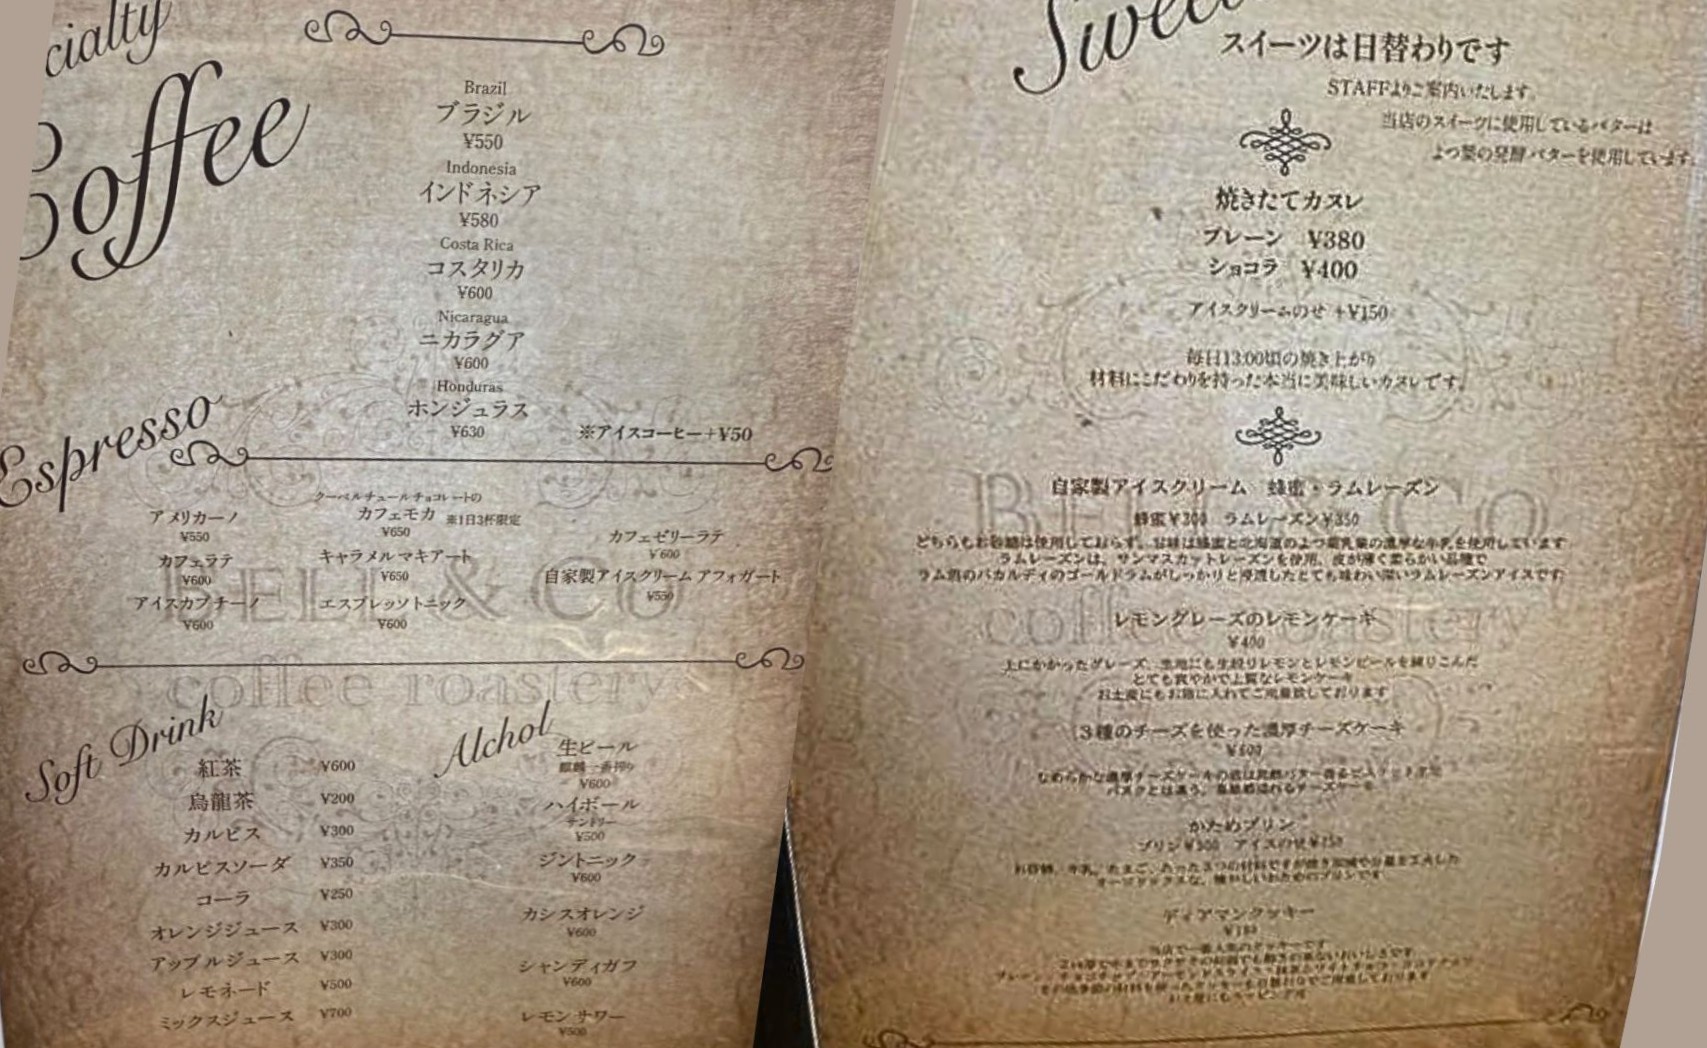 cialty
Coffee
Brazil
ブラジル
¥550
Indonesia
インドネシア
¥580
Costa Rica
コスタリカ
¥600
Nicaragua
ニカラグア
¥600
Honduras
ホンジュラス
¥630
※アイスコーヒー+¥50
Espresso
アメリカーノ
¥550
カフェラテ
¥600
アイスカプチーノ
¥600
クーベルチュールチョコレートの
カフェモカ ※1日3杯限定
¥650
キャラメルマキアート
¥650
エスプレッソトニック
¥600
カフェゼリーラテ
¥600
自家製アイスクリーム アフォガート
¥550
BELL & CO
coffee roastery
Soft Drink
紅茶 ¥600
烏龍茶 ¥200
カルピス ¥300
カルピスソーダ ¥350
コーラ ¥250
オレンジジュース ¥300
アップルジュース ¥300
レモネード ¥500
ミックスジュース ¥700
Alchol
生ビール
麒麟一番搾り
¥600
ハイボール
サントリー
¥500
ジントニック
¥600
カシスオレンジ
¥600
シャンディガフ
¥600
レモンサワー
¥500
Sweet
スイーツは日替わりです
STAFFよりご案内いたします。
当店のスイーツに使用しているバターは
よつ葉の発酵バターを使用しています。
焼きたてカヌレ
プレーン ¥380
ショコラ ¥400
アイスクリームのせ +¥150
毎日13:00頃の焼き上がり
材料にこだわりを持った本当に美味しいカヌレです。
自家製アイスクリーム 蜂蜜・ラムレーズン
蜂蜜¥300 ラムレーズン¥350
どちらもお砂糖は使用しておらず、甘味は蜂蜜と北海道のよつ葉乳業の濃厚な牛乳を使用しています
ラムレーズンは、サンマスカットレーズンを使用、皮が薄く柔らかい品種で
ラム酒のバカルディのゴールドラムがしっかりと浸透したとても味わい深いラムレーズンアイスです
coffee roastery
レモングレーズのレモンケーキ
¥400
上にかかったグレーズ、生地にも生絞りレモンとレモンピールを練りこんだ
とても爽やかで上質なレモンケーキ
お土産にもお箱に入れてご用意致しております
3種のチーズを使った濃厚チーズケーキ
¥600
なめらかな濃厚チーズケーキの底は発酵バター香る
バスクとは違う、チーズケーキ
かためプリン
プリン¥500 アイスのせ
お砂糖、牛乳、たまご、たった3つの材料ですが焼き加減や分量を工夫した
オーソドックスな、懐かしいかためのプリンです
ディアマンクッキー
当店で一番人気のクッキーです